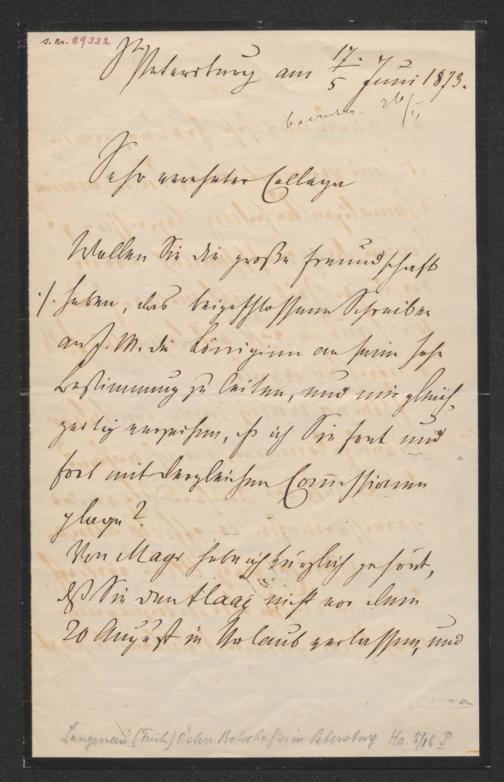 s. n. 89332
St Petersburg am 17/5 Juni 1873.
26/
Sehr verehrter Collega
Wollen Sie die große Freundschaft
./. haben, das beigeschlossene Schreiben
an J. M. die Königinn an seine hohe
Bestimmung zu leiten, und mir gleich-
zeitig verzeihen, daß ich Sie fort und
fort mit dergleichen Commissionen
plage?
Von Mayr habe ich kürzlich gehört,
daß Sie den Haag nicht vor dem
20 August in Urlaub verlassen, und
Langenau (Freih.) österr. Botschafter in Petersburg Ha. 5/16